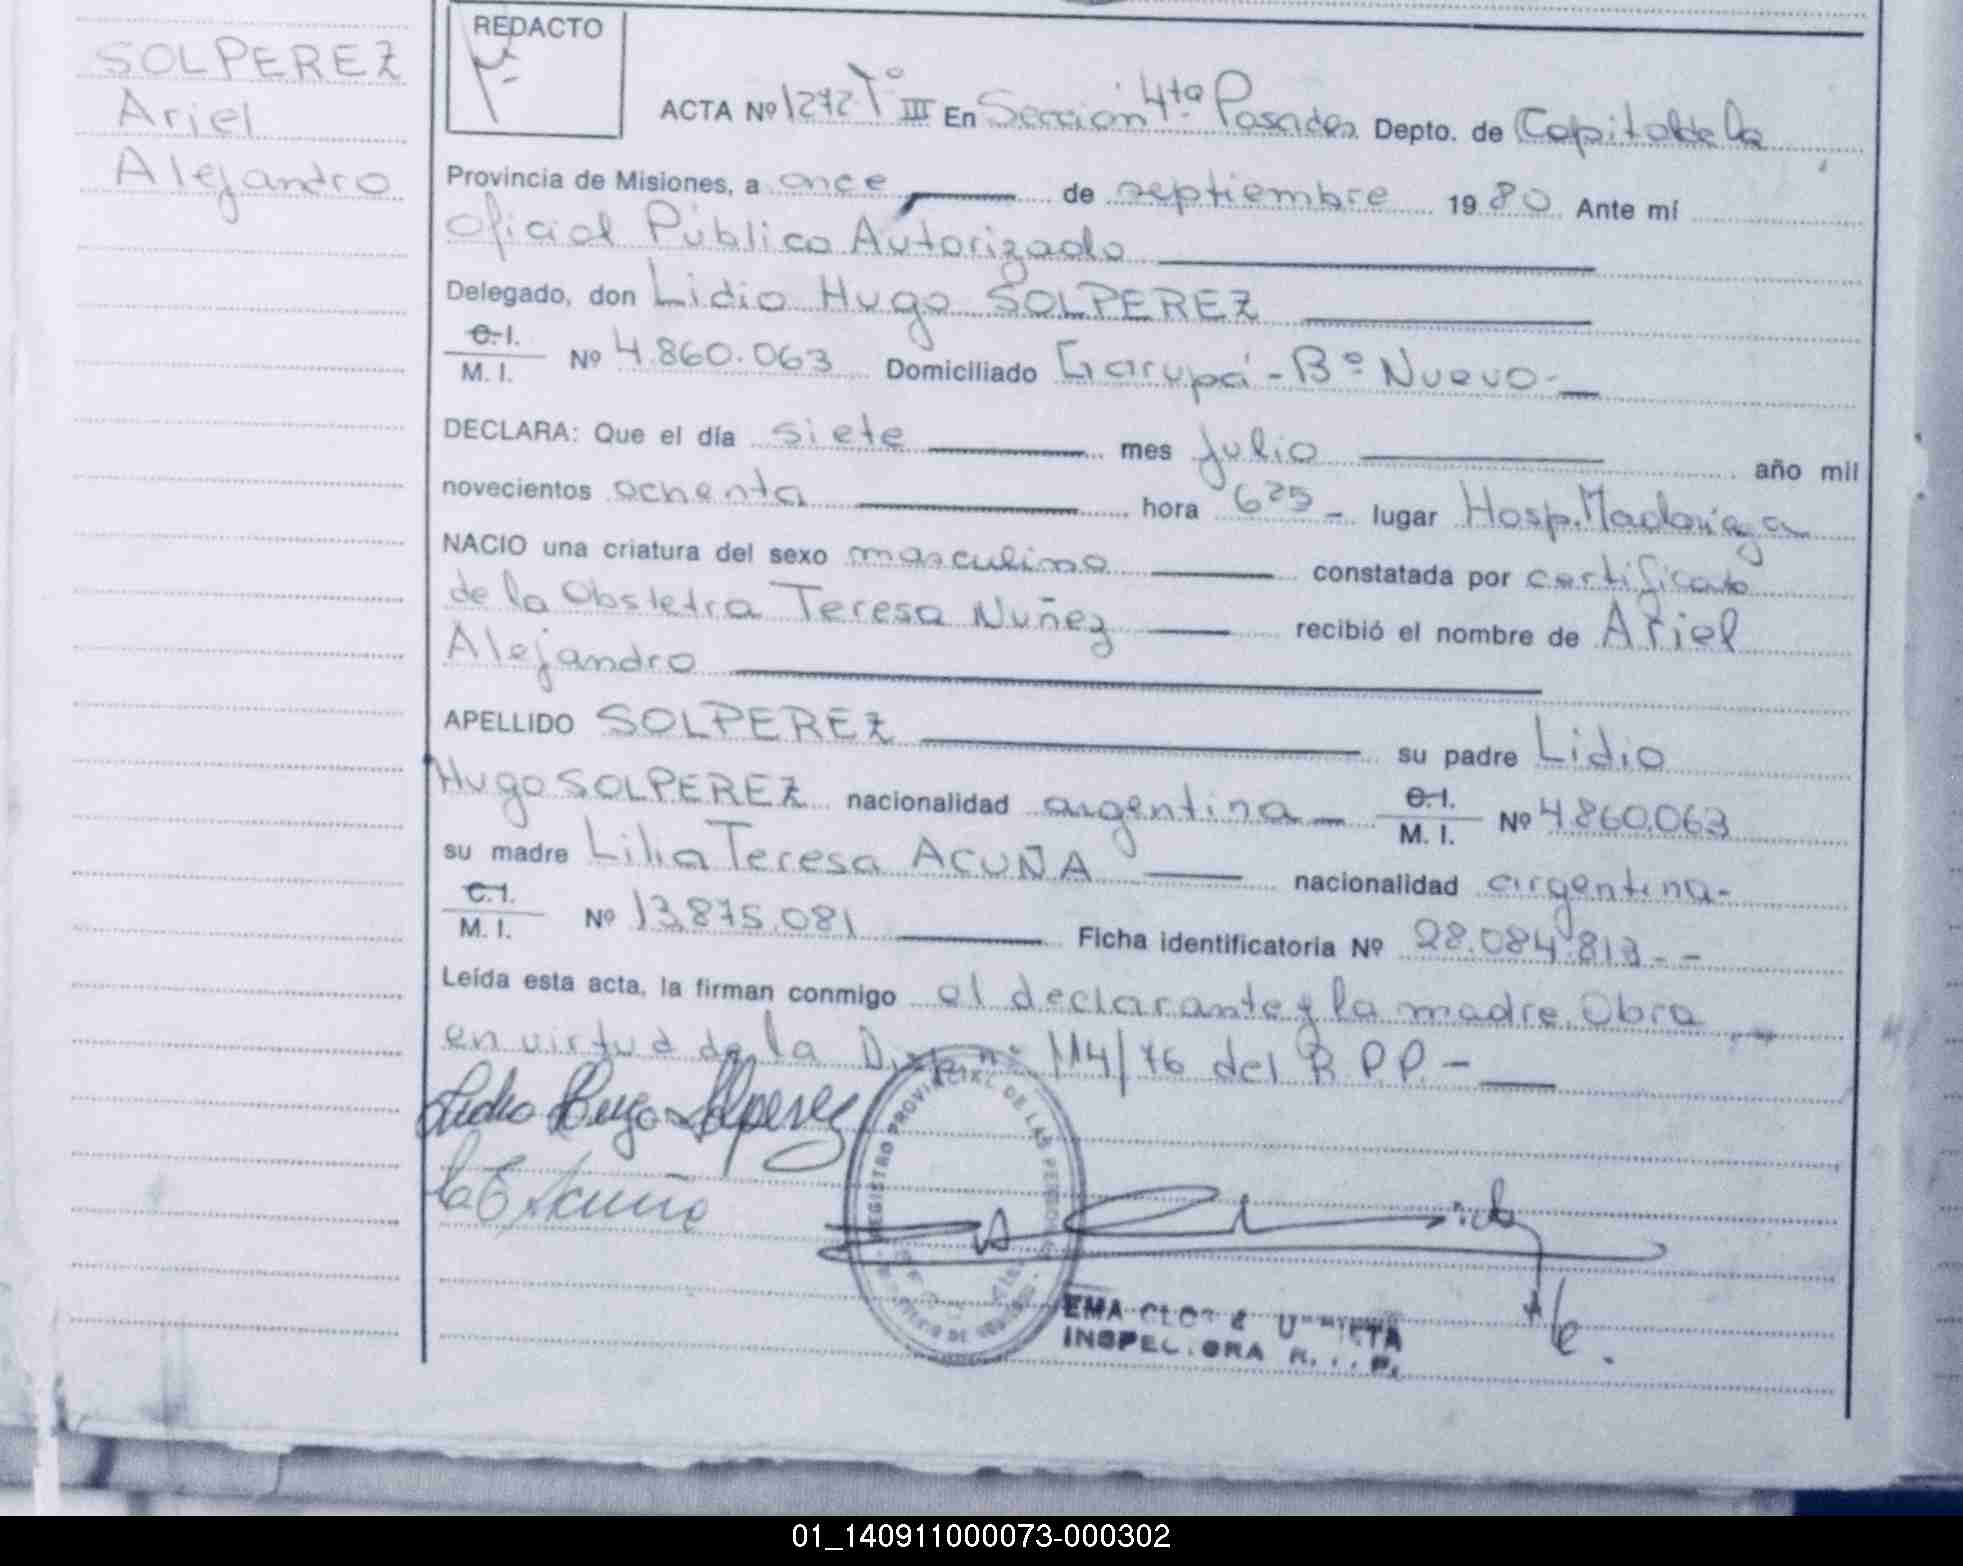 SOLPEREZ
Ariel
Alejandro
REDACTO
ACTA Nº 1272 Tº III En Sección 4ta. Posadas Depto. de Capital de la
Provincia de Misiones, a once de septiembre 1980 Ante mí
Oficial Público Autorizado
Delegado, don Lidio Hugo SOLPEREZ
C.I.
M. I. Nº 4.860.063 Domiciliado Garupá - Bº Nuevo -
DECLARA: Que el día siete mes julio año mil
novecientos ochenta hora 6 25 - lugar Hosp. Madariaga
NACIO una criatura del sexo masculino constatada por certificado
de la Obstetra Teresa Nuñez recibió el nombre de Ariel
Alejandro
APELLIDO SOLPEREZ su padre Lidio
Hugo SOLPEREZ nacionalidad argentina - C.I. M. I. Nº 4860.063
su madre Lilia Teresa ACUÑA nacionalidad argentina -
C.I.
M. I. Nº 13.875.081 Ficha identificatoria Nº 28.084.813 - -
Leída esta acta, la firman conmigo el declarante y la madre. Obra
en virtud de la Disp. nº 114/76 del R.P.P. -
Lidio Hugo Solperez
Acuña
REGISTRO PROVINCIAL DE LAS PERSONAS
EMA
INSPECTORA
01_140911000073-000302